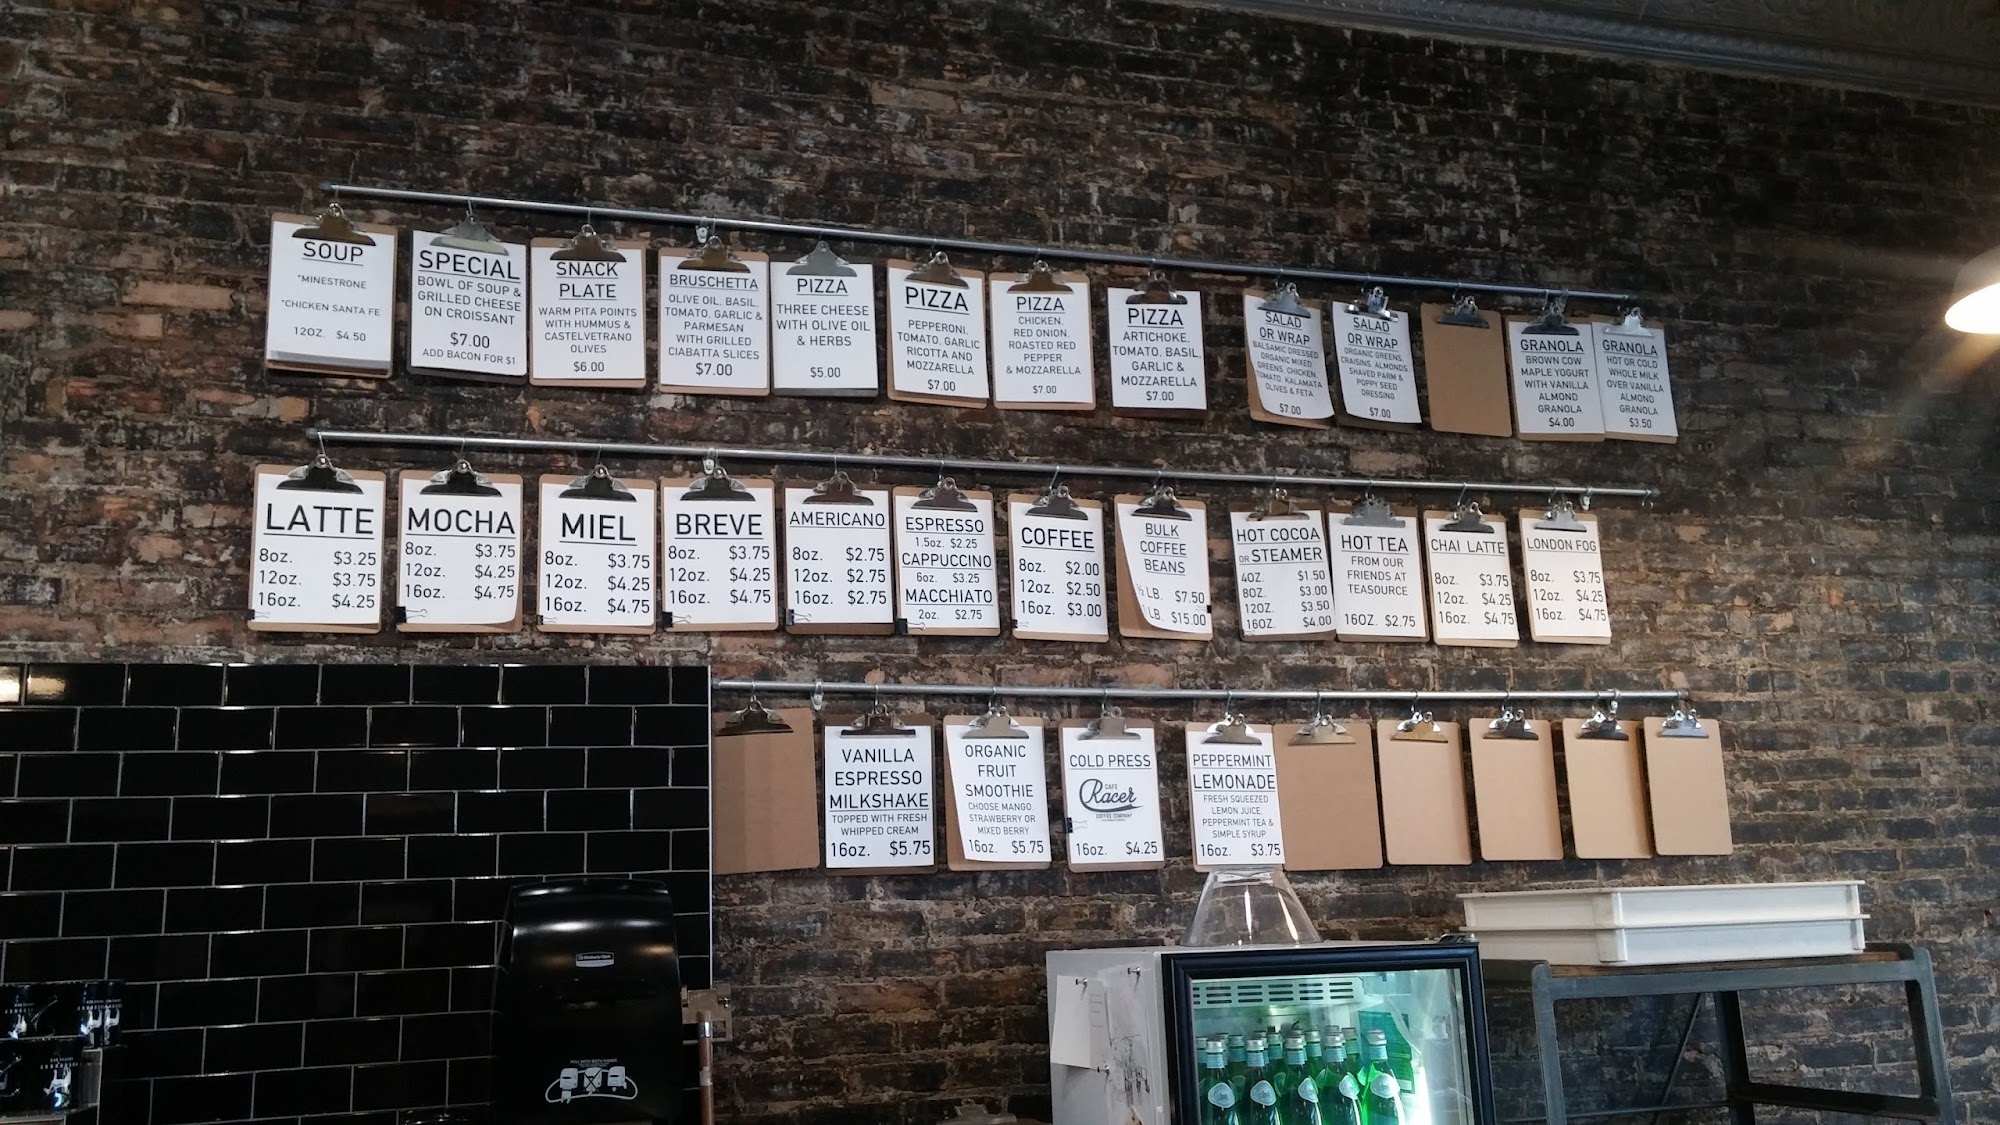 SOUP
*MINESTRONE
*CHICKEN SANTA FE
12OZ. $4.50
SPECIAL
BOWL OF SOUP &
GRILLED CHEESE
ON CROISSANT
$7.00
ADD BACON FOR $1
SNACK
PLATE
WARM PITA POINTS
WITH HUMMUS &
CASTELVETRANO
OLIVES
$6.00
BRUSCHETTA
OLIVE OIL, BASIL,
TOMATO, GARLIC &
PARMESAN
WITH GRILLED
CIABATTA SLICES
$7.00
PIZZA
THREE CHEESE
WITH OLIVE OIL
& HERBS
$5.00
PIZZA
PEPPERONI,
TOMATO, GARLIC
RICOTTA AND
MOZZARELLA
$7.00
PIZZA
CHICKEN,
RED ONION,
ROASTED RED
PEPPER
& MOZZARELLA
$7.00
PIZZA
ARTICHOKE,
TOMATO, BASIL,
GARLIC &
MOZZARELLA
$7.00
SALAD
OR WRAP
BALSAMIC DRESSED
ORGANIC MIXED
GREENS, CHICKEN,
TOMATO, KALAMATA
OLIVES & FETA
$7.00
SALAD
OR WRAP
ORGANIC GREENS,
CRAISINS, ALMONDS,
SHAVED PARM &
POPPY SEED
DRESSING
$7.00
GRANOLA
BROWN COW
MAPLE YOGURT
WITH VANILLA
ALMOND
GRANOLA
$4.00
GRANOLA
HOT OR COLD
WHOLE MILK
OVER VANILLA
ALMOND
GRANOLA
$3.50
LATTE
8oz. $3.25
12oz. $3.75
16oz. $4.25
MOCHA
8oz. $3.75
12oz. $4.25
16oz. $4.75
MIEL
8oz. $3.75
12oz. $4.25
16oz. $4.75
BREVE
8oz. $3.75
12oz. $4.25
16oz. $4.75
AMERICANO
8oz. $2.75
12oz. $2.75
16oz. $2.75
ESPRESSO
1.5oz. $2.25
CAPPUCCINO
6oz. $3.25
MACCHIATO
2oz. $2.75
COFFEE
8oz. $2.00
12oz. $2.50
16oz. $3.00
BULK
COFFEE
BEANS
½ LB. $7.50
1LB. $15.00
HOT COCOA
OR STEAMER
4OZ. $1.50
8OZ. $3.00
12OZ. $3.50
16OZ. $4.00
HOT TEA
FROM OUR
FRIENDS AT
TEASOURCE
16OZ. $2.75
CHAI LATTE
8oz. $3.75
12oz. $4.25
16oz. $4.75
LONDON FOG
8oz. $3.75
12oz. $4.25
16oz. $4.75
VANILLA
ESPRESSO
MILKSHAKE
TOPPED WITH FRESH
WHIPPED CREAM
16oz. $5.75
ORGANIC
FRUIT
SMOOTHIE
CHOOSE MANGO,
STRAWBERRY OR
MIXED BERRY
16oz. $5.75
COLD PRESS
CAFE
Racer
COFFEE COMPANY
16oz. $4.25
PEPPERMINT
LEMONADE
FRESH SQUEEZED
LEMON JUICE,
PEPPERMINT TEA &
SIMPLE SYRUP
16oz. $3.75